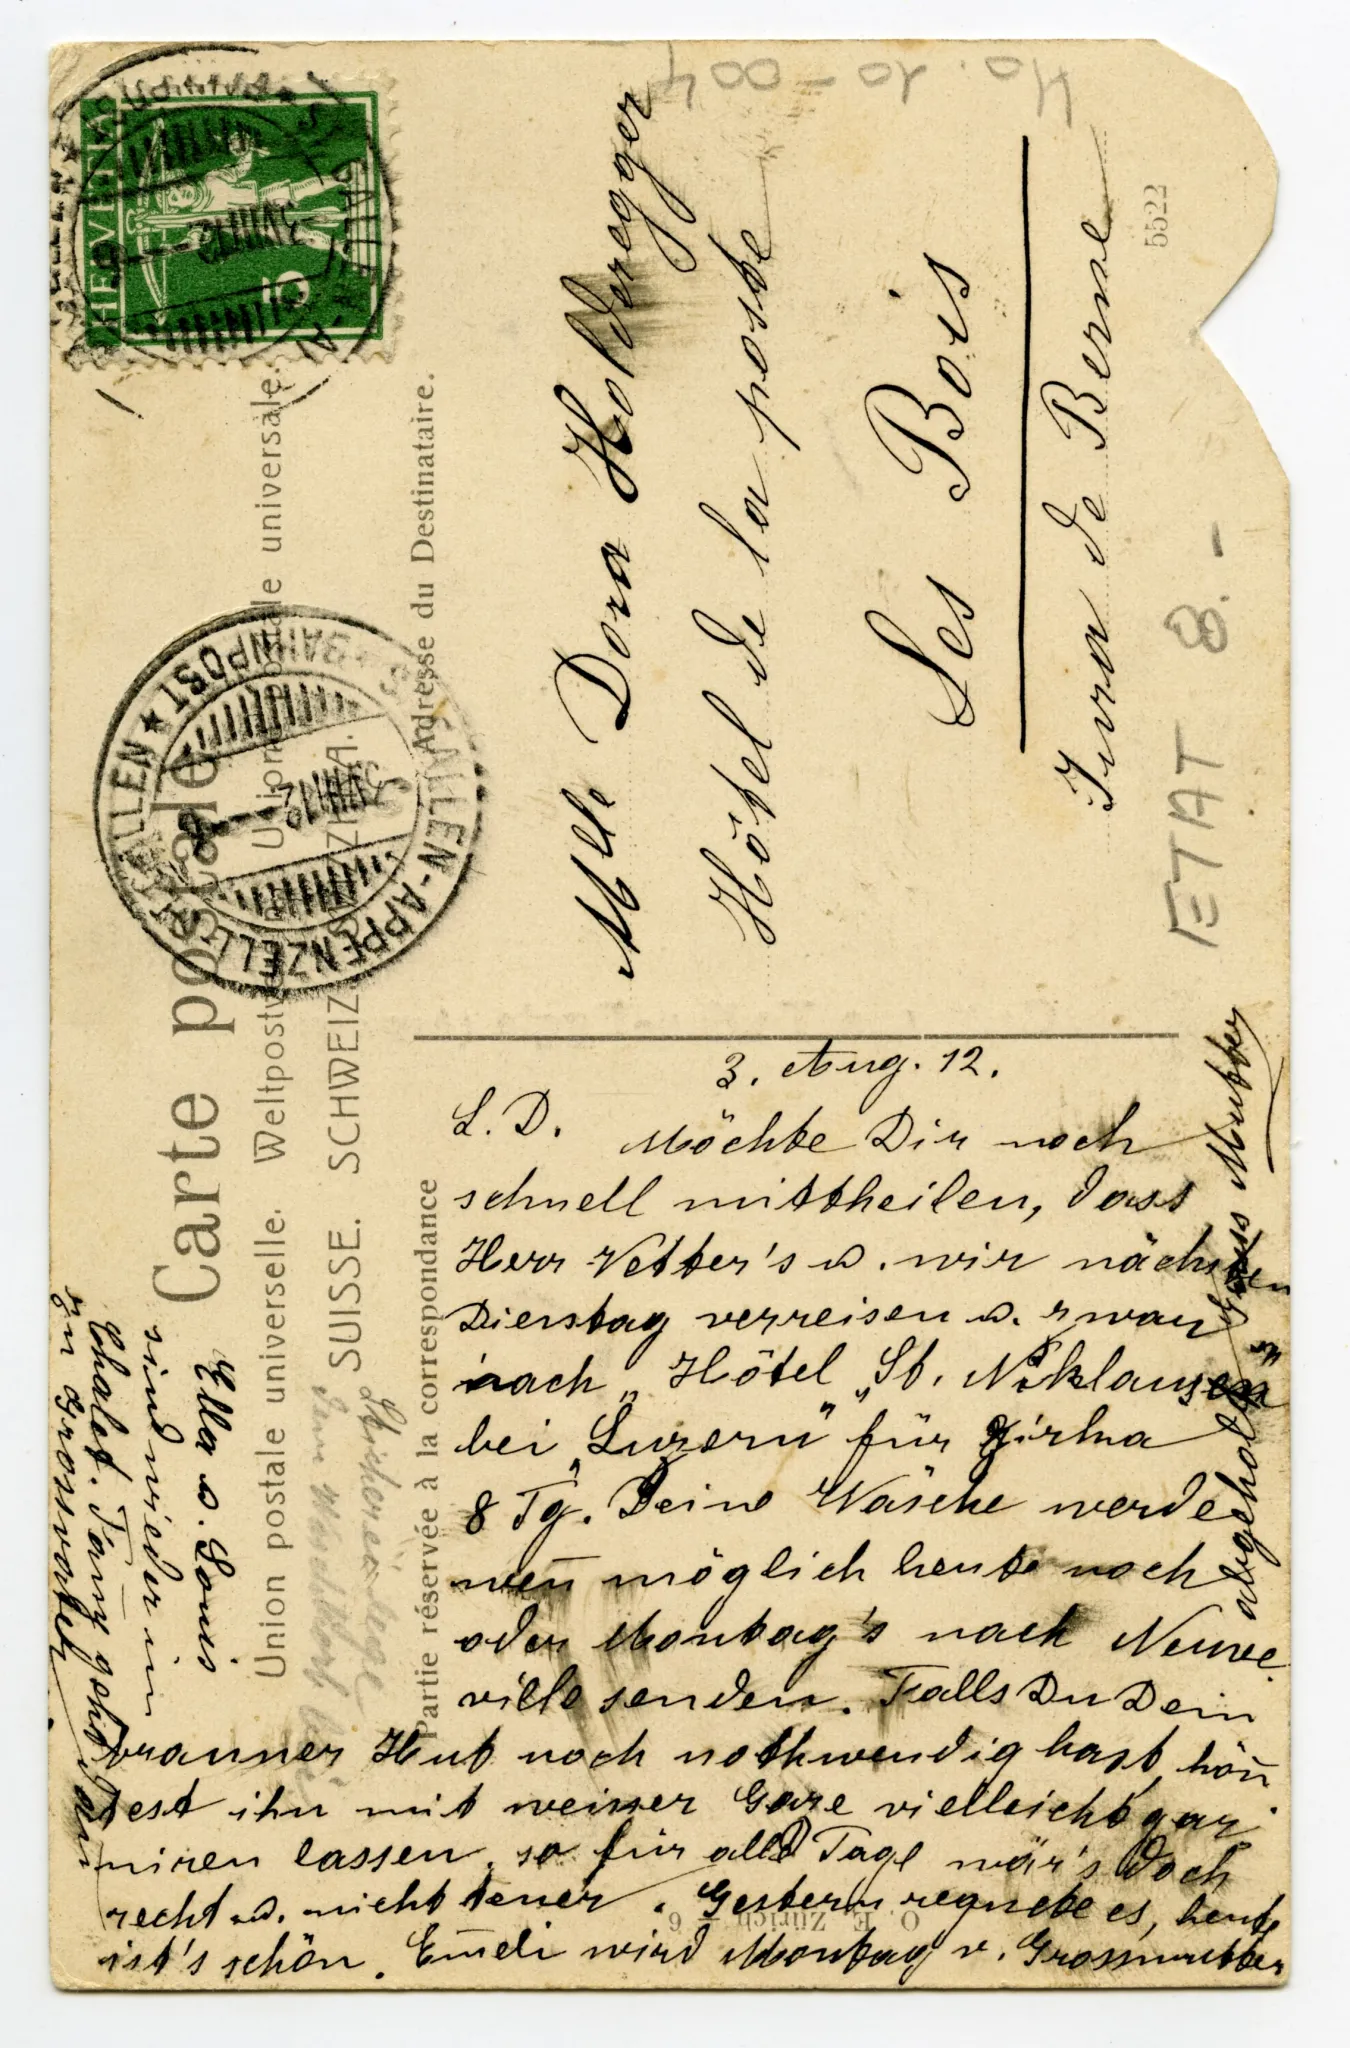 Carte postale
Union postale universelle. Weltpostverein. Unione postale universale.
SUISSE. SCHWEIZ. SVIZZERA.
Partie réservée à la correspondance
Adresse du Destinataire.
HELVETIA
5
ST. GALLEN-APPENZELL-ST. GALLEN ★ BAHNPOST ★
3.VIII.12
Mlle Dora Holderegger
Hôtel de la poste
Les Bois
Jura de Berne
5522
Ho. 10-004
ETAT 8.-
3. Aug. 12.
L. D. Möchte Dir noch
schnell mittheilen, dass
Herr Vetter's u. wir nächsten
Dienstag verreisen u. zwar
nach „Hôtel „St. Niklausen"
bei „Luzern" für zirka
8 Tg. Deine Wäsche werde
wen̄ möglich heute noch
oder Montag's nach Neuve
ville senden. Falls Du Dein
brauner Hut noch nothwendig hast, kön̄
test ihn mit weisser Gaze vielleicht gar
niren lassen, so für alle Tage wär's doch
recht u. nicht teuer. Gestern regnete es, heute
ist's schön. Em̄eli wird Montag v. Grossmutter
abgeholt
Gruss Mutter
Ella u. Louis
sind wieder in
Chalet. Fany geht dann
zu Grossvater
O. E. Zürich 6